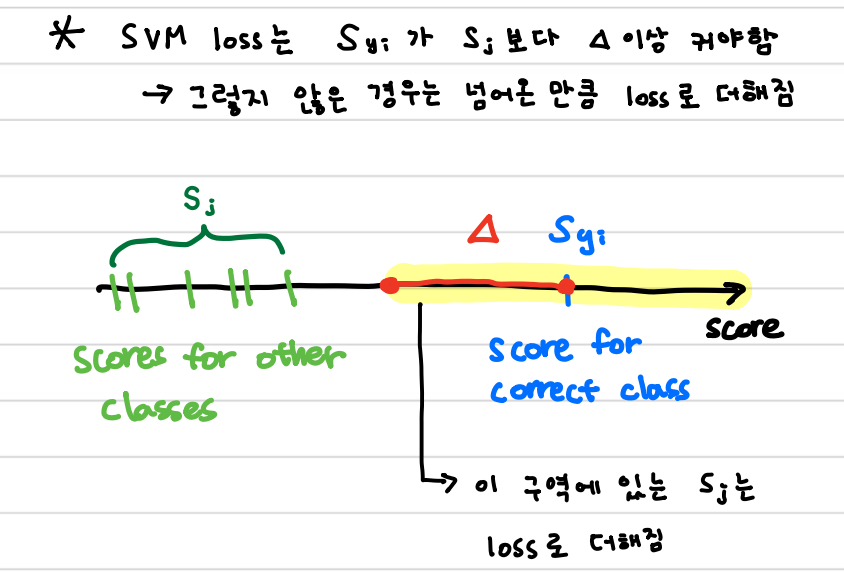 * SVM loss는 Syi 가 Sj 보다 Δ 이상 커야함
→ 그렇지 않은 경우는 넘어온 만큼 loss로 더해짐
Sj
Δ Syi
score
scores for other
classes
score for
correct class
이 구역에 있는 Sj는
loss로 더해짐